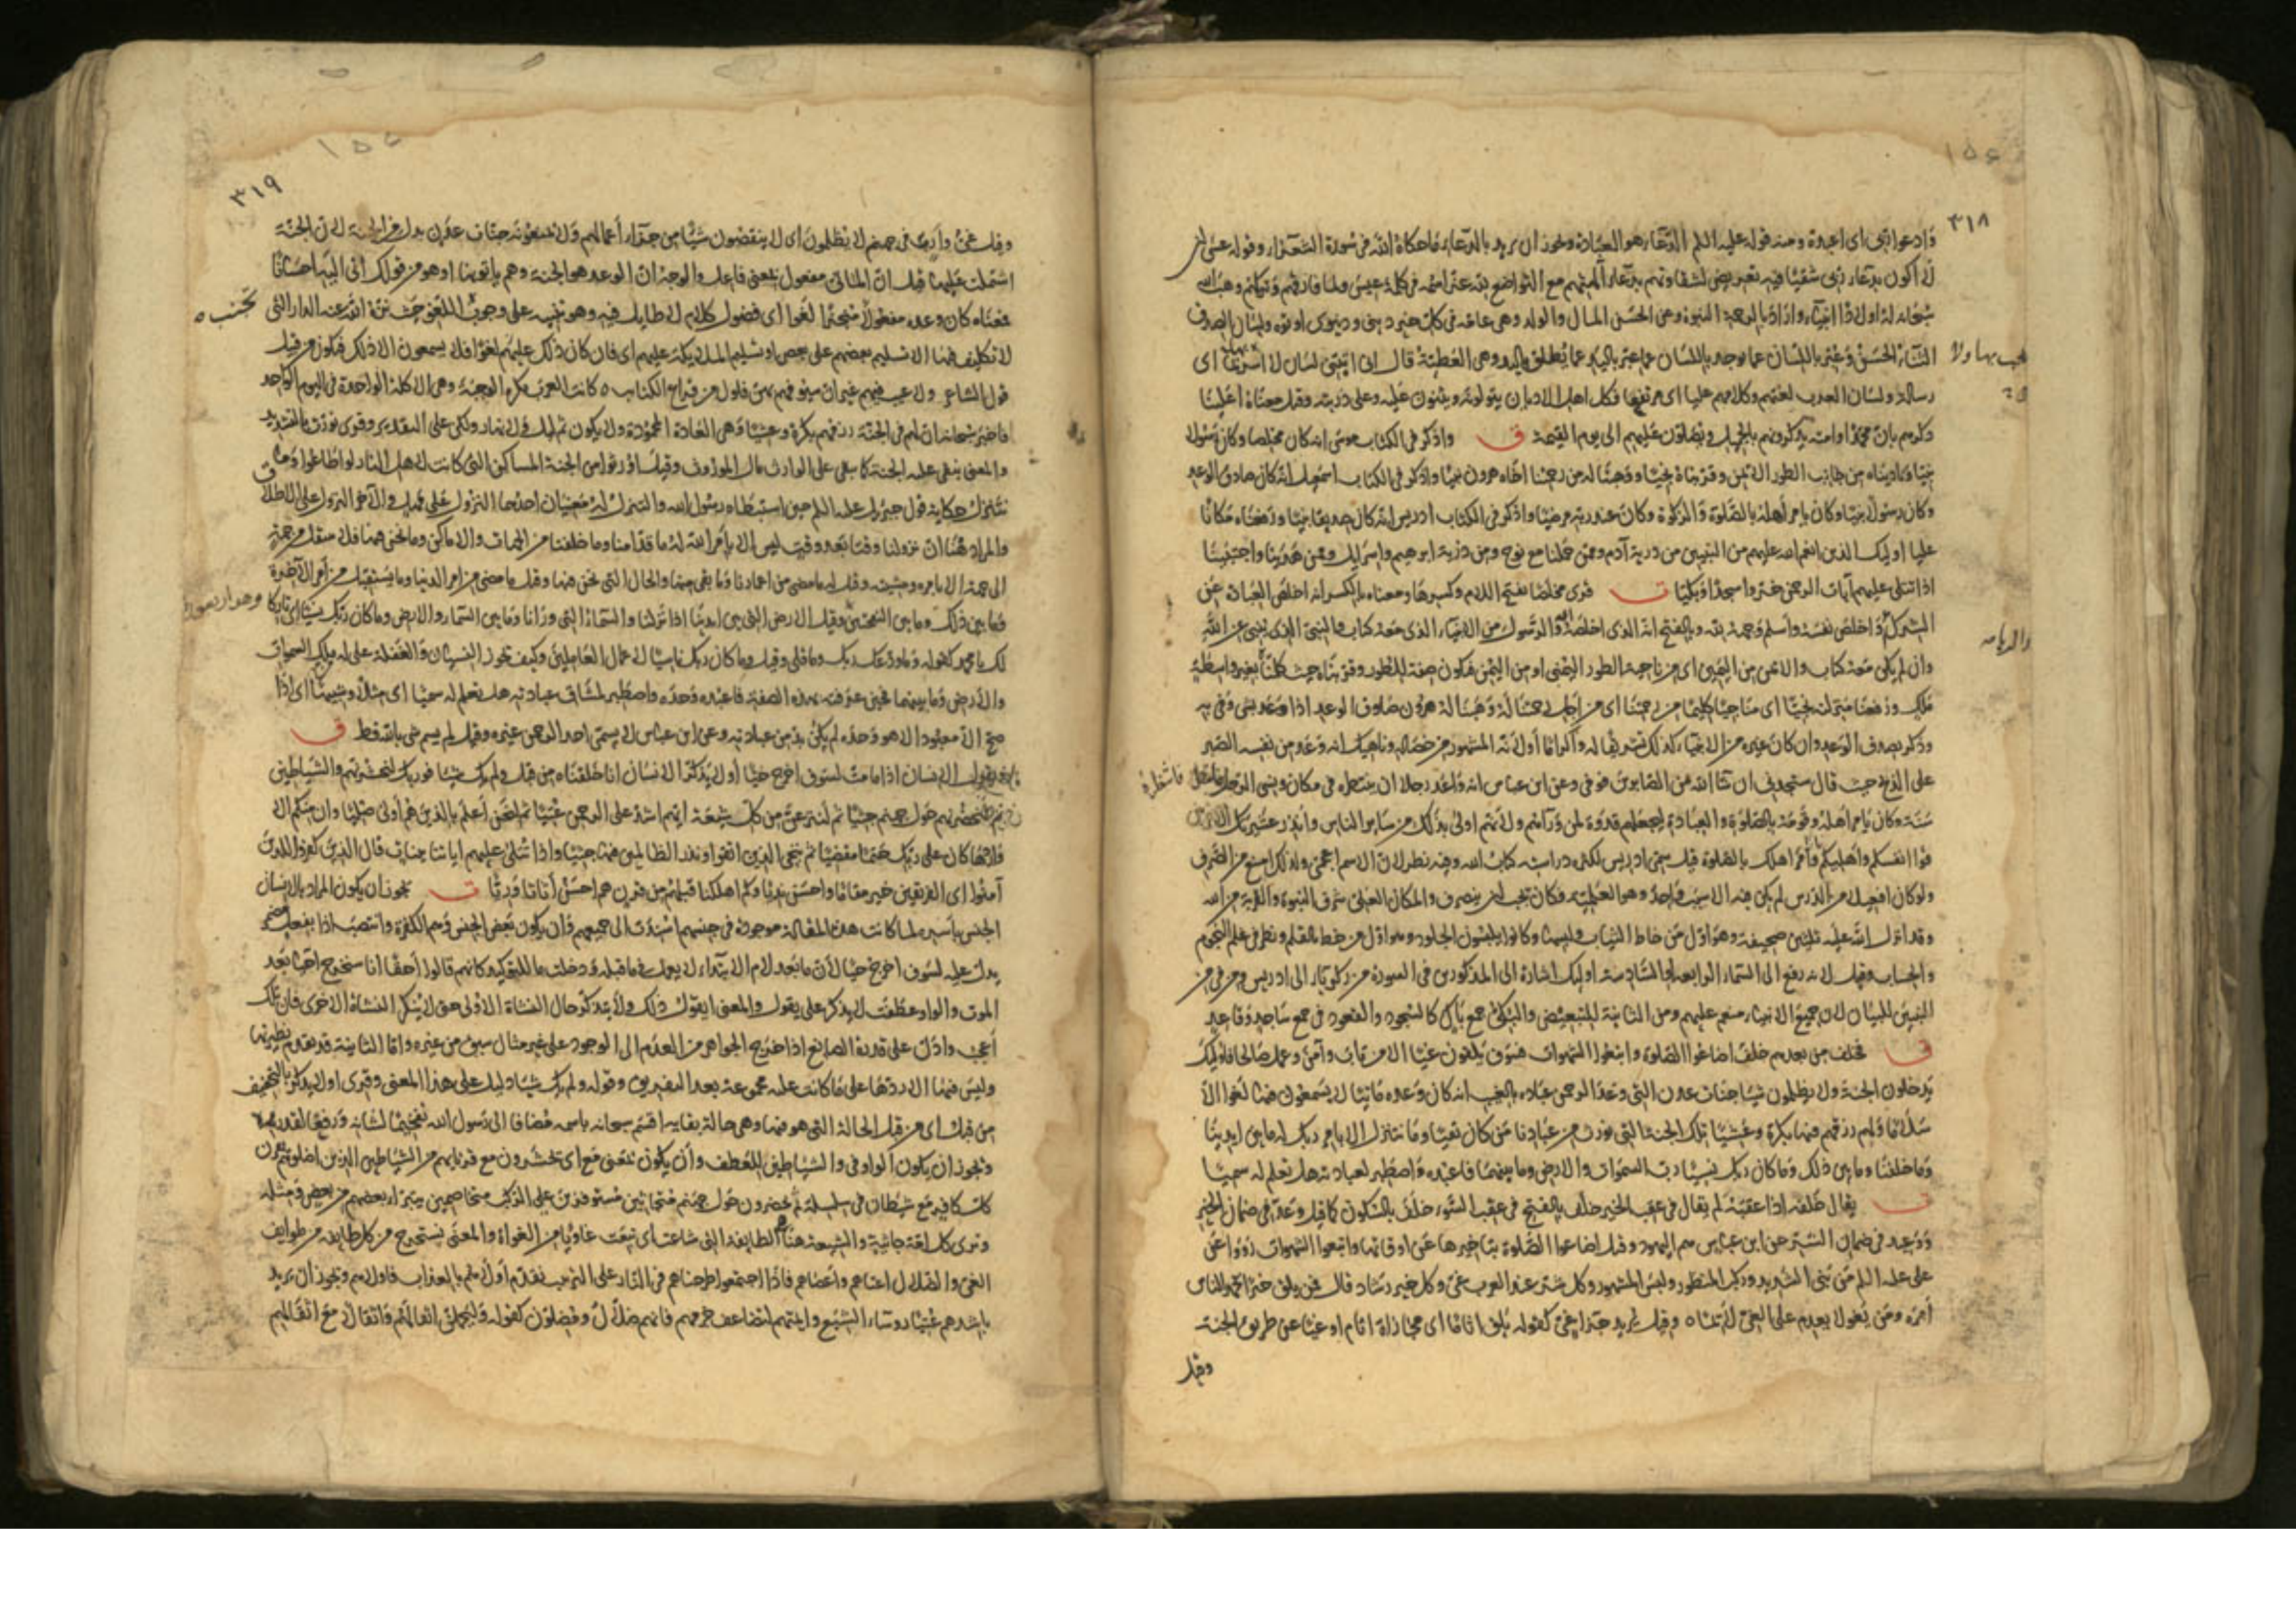 ٣١٨
وادعوا ربي اى اعبده ومنه قوله عليه السلم الدعاء هو العبادة ويجوز ان يريد بالدعاء ما حكاه الله فى سورة الشعراء وقوله عسى ان
لا اكون بدعاء ربى شقيا فيه تعريض لشقاوتهم بدعاء آلهتهم مع التواضع لله عز اسمه فى كلمة عسى ولما فارقهم وتركهم وهب الله
سبحانه له اولادا انبياء واراد بالرحمة النبوة وعن الحسن المال والولد وهى عامة فى كل خير دينى ودنيوى اوتوه ولسان الصدق
الثناء الحسن وعبر باللسان عما يوجد باللسان كما عبر باليد عما يطلق باليد وهى العطية قال انى اتتنى لسان لا اسر بها اى
رسالة ولسان العرب لغتهم وكلامهم عليا اى مرتفعا فكل اهل الاديان يتولونه ويثنون عليه وعلى ذريته وقيل معناه اعلينا
ذكرهم بان محمدا وامته يذكرونهم بالجميل ويصلون عليهم الى يوم القيمة ق واذكر فى الكتاب موسى انه كان مخلصا وكان رسولا
نبيا وناديناه من جانب الطور الايمن وقربناه نجيا ووهبنا له من رحمتنا اخاه هرون نبيا واذكر فى الكتاب اسمعيل انه كان صادق الوعد
وكان رسولا نبيا وكان يامر أهله بالصلوة والزكوة وكان عند ربه مرضيا واذكر فى الكتاب ادريس انه كان صديقا نبيا ورفعناه مكانا
عليا اوليك الذين انعم الله عليهم من النبيين من ذرية آدم وممن حملنا مع نوح ومن ذرية ابرهيم واسرايل وممن هدينا واجتبينا
اذا تتلى عليهم آيات الرحمن خروا سجدا وبكيا ت قرى مخلصا بفتح اللام وكسرها ومعناه بالكسر انه اخلص العبادة عن
الشرك واخلص نفسه وأسلم وجهه لله وبالفتح انه الذى اخلصه الله والرسول من الانبياء الذى معه كتاب والنبى الذى ينبى عن الله
وان لم يكن معه كتاب والايمن من اليمين اى من ناحية الطور اليمنى او من اليمن فيكون صفة للطور وقربناه حيث كلمناه بغير واسطة
ملك ورفعنا منزلته نجيا اى مناجيا كليما من رحمتنا اى من اجل رحمتنا له ووهبنا له هرون صادق الوعد اذا وعد بشى وفى به
وذكر بصدق الوعد وان كان غيره من الانبياء كذلك تشريفا له واكراما أو لانه المشهور من خصاله وناهيك انه وعد من نفسه الصبر
على الذبح حيث قال ستجدنى ان شا الله من الصابرين فوفى وعن ابن عباس انه واعد رجلا ان ينتظره فى مكان ونسى الرجل فانتظره
سنة وكان يامر اهله وقومه بالصلوة والعبادة ليجعلهم قدوة لمن ورآءهم ولانهم اولى بذلك من ساير الناس وأنذر عشيرتك الاقربين
قوا انفسكم واهليكم وأمر اهلك بالصلوة قيل سمى ادريس لكثرة دراسته كتاب الله وفيه نظر لان الاسم اعجمى ولذلك امتنع من الصرف
ولو كان افعيل من الدرس لم يكن فيه الا سبب واحد وهو العلمية فكان يجب ان ينصرف والمكان العلى شرف النبوة والقربة من الله
وقد انزل الله عليه ثلثين صحيفة وهو اول من خاط الثياب ولبسها وكانوا يلبسون الجلود وهو اول من خط بالقلم ونظر فى علم النجوم
والحساب وقيل لانه رفع الى السماء الرابعة او السادسة اوليك اشارة الى المذكورين فى السورة من زكريا الى ادريس ومن فى من
النبيين للبيان لان جميع الانبياء منعم عليهم ومن الثانية للتبعيض والبكى جمع باك كالسجود والقعود فى جمع ساجد وقاعد
ق فخلف من بعدهم خلف اضاعوا الصلوة واتبعوا الشهوات فسوف يلقون غيا الا من تاب وآمن وعمل صالحا فاوليك
يدخلون الجنة ولا يظلمون شيا جنات عدن التى وعد الرحمن عباده بالغيب انه كان وعده ماتيا لا يسمعون فيها لغوا الا
سلاما ولهم رزقهم فيها بكرة وعشيا تلك الجنة التى نورث من عبادنا من كان تقيا وما نتنزل الا بامر ربك له ما بين ايدينا
وما خلفنا وما بين ذلك وما كان ربك نسيا رب السموات والارض وما بينهما فاعبده واصطبر لعبادته هل تعلم له سميا
ت يقال خلفه اذا عقبه ثم يقال فى عقب الخير خلف بالفتح فى عقب السوء خلف بالسكون كما قيل وعد فى ضمان الخير
ووعيد فى ضمان الشر عن ابن عباس هم اليهود وقيل اضاعوا الصلوة بتاخيرها عن اوقاتها واتبعوا الشهوات رووا عن
على عليه السلم من بنى الشديد وركب المنظور ولبس المشهور وكل شر عند العرب غى وكل خير رشاد قال فمن يلق خيرا يحمد الناس
أمره ومن يغو لا يعدم على الغى لايما ٥ وقيل يريد جزاء غى كقوله يلق اثاما اى مجازاة اثام او غيا عن طريق الجنة
وقيل
٣١٩
وقيل غى واد فى جهنم لا يظلمون اى لا ينقصون شيا من جزاء أعمالهم ولا يمنعونه جنات عدن بدل من الجنة لان الجنة
اشتملت عليها قيل ان الماتى مفعول بمعنى فاعل والوجه ان الوعد هو الجنة وهم ياتونها او هو من قولك اتى اليه احسانا
فمعناه كان وعده مفعولا منجزا لغوا اى فضول كلام لا طايل فيه وهو تنبيه على وجوب تجنب اللغو حيث نزه الله عنه الدار التى
لا تكليف فيها الا تسليم بعضهم على بعض او تسليم الملايكة عليهم اى فان كان ذلك عليهم لغوا فلا يسمعون الا ذلك فيكون من قبيل
قول الشاعر ولا عيب فيهم غير ان سيوفهم بهن فلول من قراع الكتايب ٥ كانت العرب تكره الوجبة وهى الاكلة الواحدة فى اليوم الواحد
فاخبر سبحانه ان لهم فى الجنة رزقهم بكرة وعشيا وهى العادة المحمودة ولا يكون ثم ليل ولا نهار ولكن على التقدير وقرى نورث بالتشديد
والمعنى نبقى عليه الجنة كما نبقى على الوارث مال الموروث وقيل اورثوا من الجنة المساكن التى كانت لاهل النار لو اطاعوا وما
نتنزل حكاية قول جبريل عليه السلم حين استبطاه رسول الله والتنزل له معنيان احدهما النزول على مهل والآخر النزول على الاطلاق
والمراد هنا ان نزولنا وقتا بعد وقت ليس الا بأمر الله له ما قدامنا وما خلفنا من الجهات والاماكن وما نحن فيها فلا ننتقل من جهة
الى جهة الا بامره ومشيته وقيل له ما مضى من اعمارنا وما بقى منها والحال التى نحن فيها وقيل ما مضى من امر الدنيا وما يستقبل من أمر الآخرة
وما بين ذلك وما بين النفختين وقيل الارض التى بين ايدينا اذا نزلنا والسماء التى ورانا وما بين السماء والارض وما كان ربك نسيا اى تاركا
لك يا محمد كقوله ما ودعك ربك وما قلى وقيل وما كان ربك ناسيا لاعمال العاملين وكيف يجوز النسيان والغفلة على من له ملك السموات
والارض وما بينهما فحين عرفته بهذه الصفة فاعبده وحده واصطبر لمشاق عبادته هل تعلم له سميا اى مثلا وشبيها اى اذا
صح الا معبود الا هو وحده لم يكن بد من عبادته وعن ابن عباس لا يسمى احد الرحمن غيره وقيل لم يسم شى بالله قط ق
ويقول الانسان اذا ما مت لسوف اخرج حيا أولا يذكر الانسان انا خلقناه من قبل ولم يك شيا فوربك لنحشرنهم والشياطين
ثم لنحضرنهم حول جهنم جثيا ثم لننزعن من كل شيعة ايهم اشد على الرحمن عتيا ثم لنحن أعلم بالذين هم أولى صليا وان منكم الا
واردها كان على ربك حتما مقضيا ثم ننجى الذين اتقوا ونذر الظالمين فيها جثيا واذا تتلى عليهم اياتنا بينات قال الذين كفروا للذين
آمنوا اى الفريقين خير مقاما واحسن نديا وكم اهلكنا قبلهم من قرن هم احسن أثاثا ورئيا ت يجوز ان يكون المراد بالانسان
الجنس بأسره لما كانت هذه المقالة موجودة فى جنسهم اسندت الى جميعهم وان يكون بعض الجنس وهم الكفرة وانتصب اذا بفعل مضمر
يدل عليه لسوف اخرج حيا لأن ما بعد لام الابتداء لا يعمل فيما قبله ودخلت ما للتوكيد كانهم قالوا أحقا انا سنخرج احياء بعد
الموت والواو عطفت لا يذكر على يقول والمعنى ايقول ذلك ولا يتذكر حال النشاة الاولى حتى لا ينكر النشاة الاخرى فان تلك
أعجب وادل على قدرة الصانع اذا خرج الجواهر من العدم الى الوجود على غير مثال سبق من غيره واما الثانية فقد تقدم نظيرتها
وليس فيها الا ردها على ما كانت عليه مجموعة بعد التفريق وقوله ولم يك شيا دليل على هذا المعنى وقرى اولا يذكر بالتخفيف
من قبل اى من قبل الحالة التى هو فيها وهى حالة بقايه اقسم سبحانه باسمه مضافا الى رسول الله تفخيما لشانه ورفعا لقدره
ويجوز ان يكون الواو فى والشياطين للعطف وأن يكون بمعنى مع اى يحشرون مع قرنايهم من الشياطين الذين اضلوهم يقرن
كل كافر مع شيطان فى سلسلة ثم يحضرون حول جهنم متجاثين مستوفزين على الركب متخاصمين يتبرأ بعضهم من بعض ومثله
وترى كل امة جاثية والشيعة هنا الطايفة التى شاعت اى تبعت غاويا من الغواة والمعنى يستخرج من كل طايفة من طوايف
الغى والضلال اعتاهم واعصاهم فاذا اجتمعوا طرحناهم فى النار على الترتيب نقدم أولاهم بالعذاب فاولاهم ويجوز ان يريد
باشدهم عتيا روساء الشيع وايمتهم لتضاعف جرمهم فانهم ضلال ومضلون كقوله وليحملن اثقالهم واثقالا مع اثقالهم